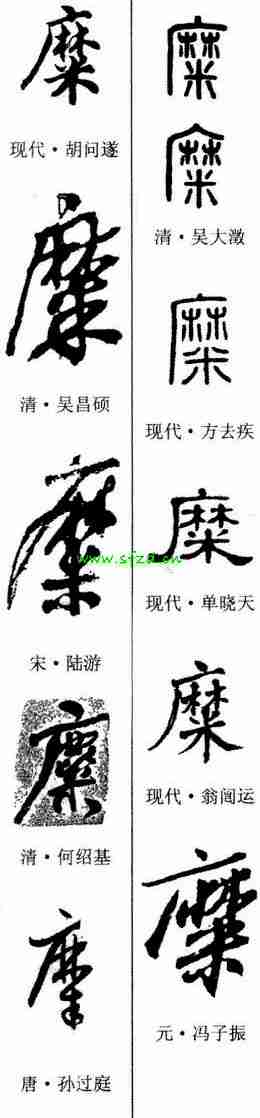 糜
糜
清·吴大澂
糜
现代·方去疾
糜
现代·单晓天
糜
现代·翁闿运
糜
元·冯子振
糜
现代·胡问遂
糜
清·吴昌硕
糜
宋·陆游
糜
清·何绍基
糜
唐·孙过庭
www.sfzd.cn